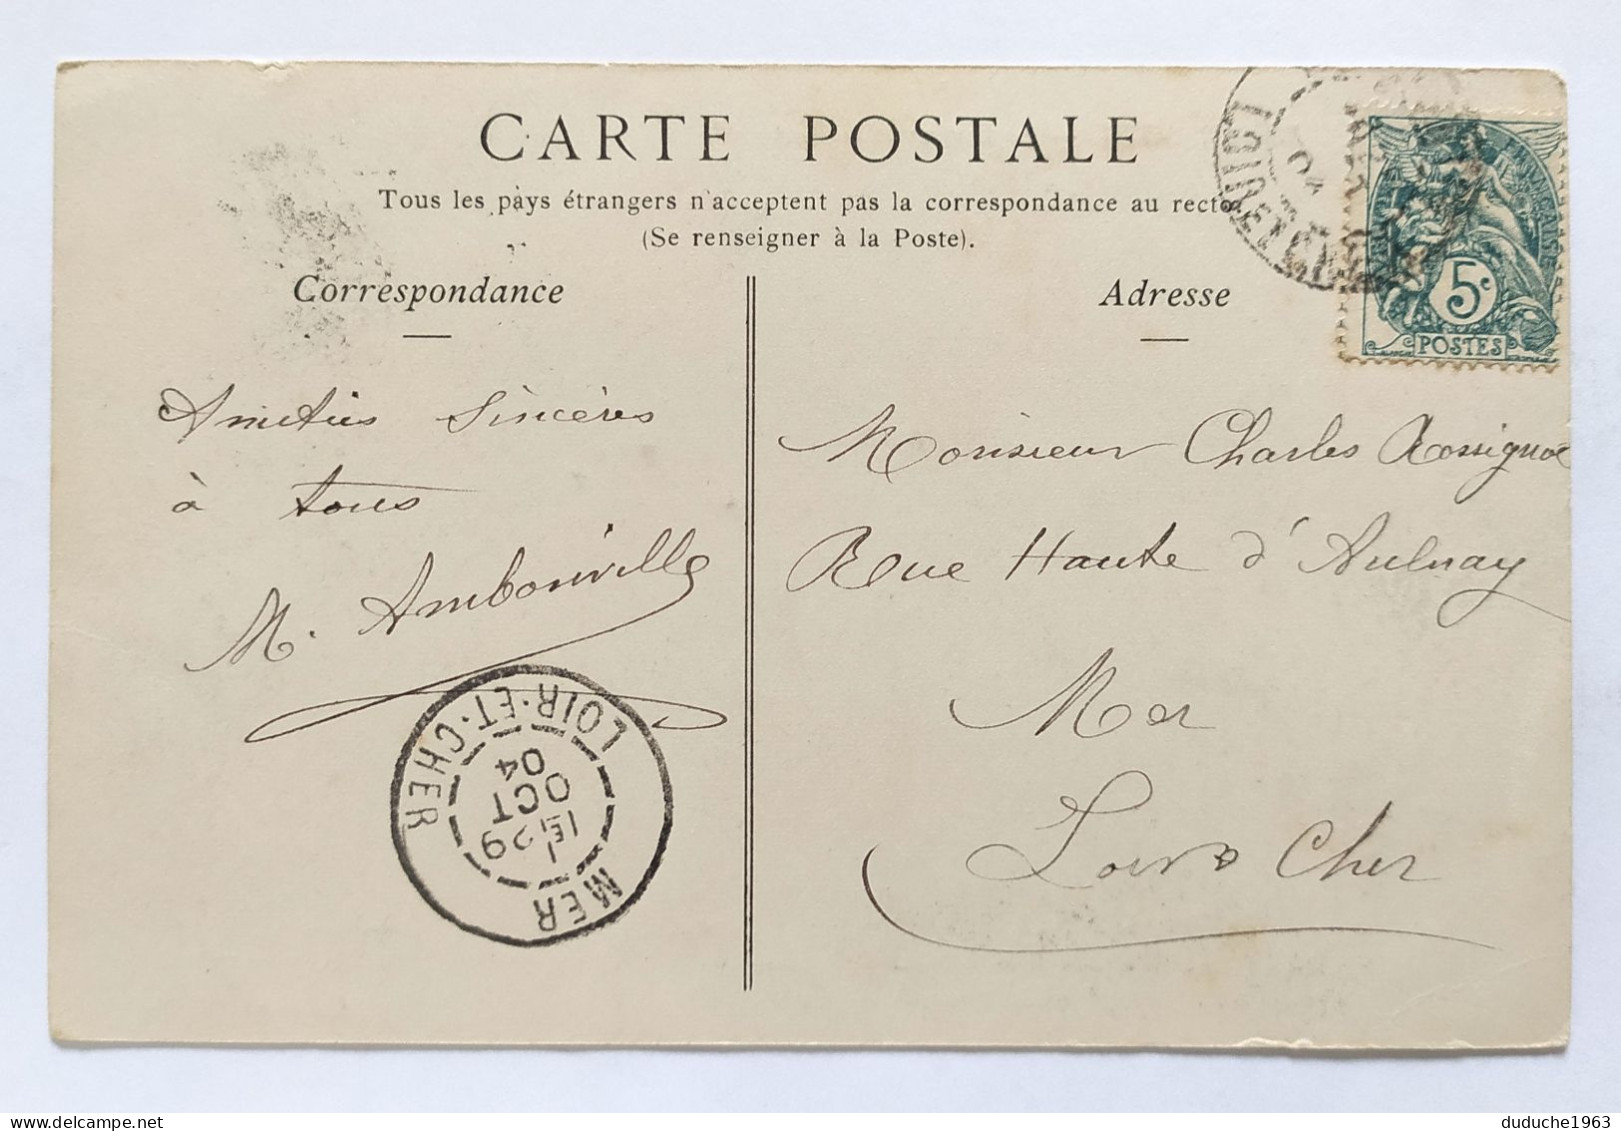 CARTE POSTALE
Tous les pays étrangers n'acceptent pas la correspondance au recto
(Se renseigner à la Poste).
Correspondance
Adresse
5c
POSTES
Amitiés Sincères
à tous
M. Ambonville
Monsieur Charles Rossignol
Rue Haute d'Aulnay
Mer
Loir & Cher
LOIR-ET-CHER
1E
29
OCT
04
MER
duduche1963